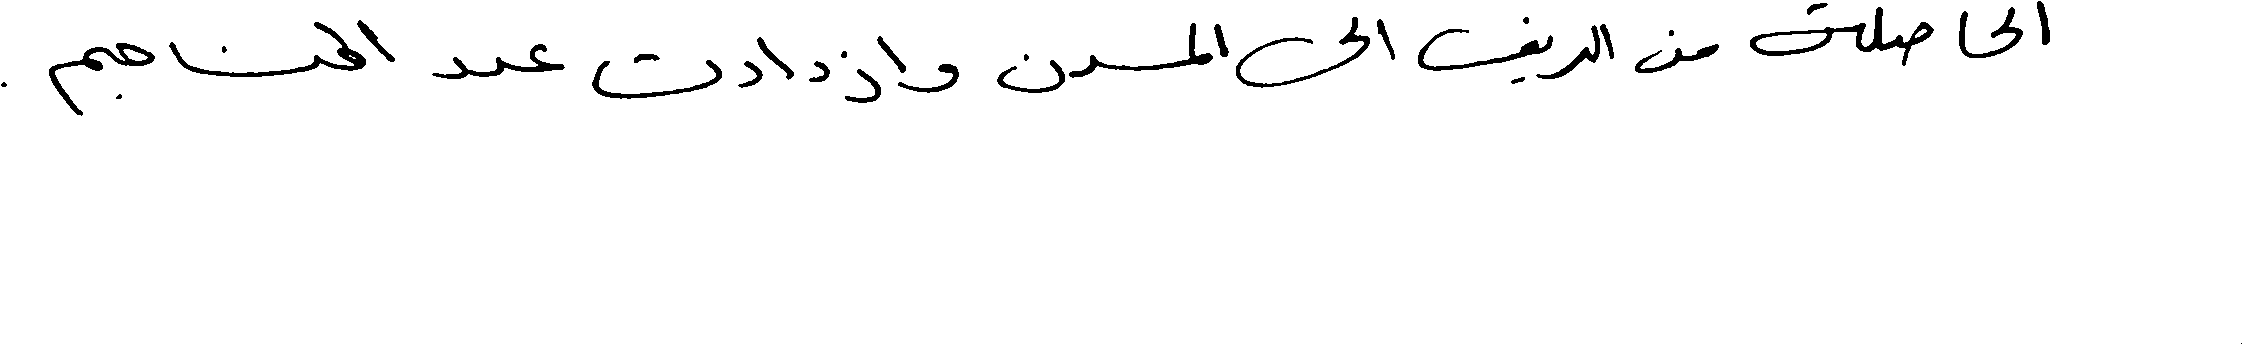 الحاصلة من الريف الى المدن وازدادت عدد المناجم .